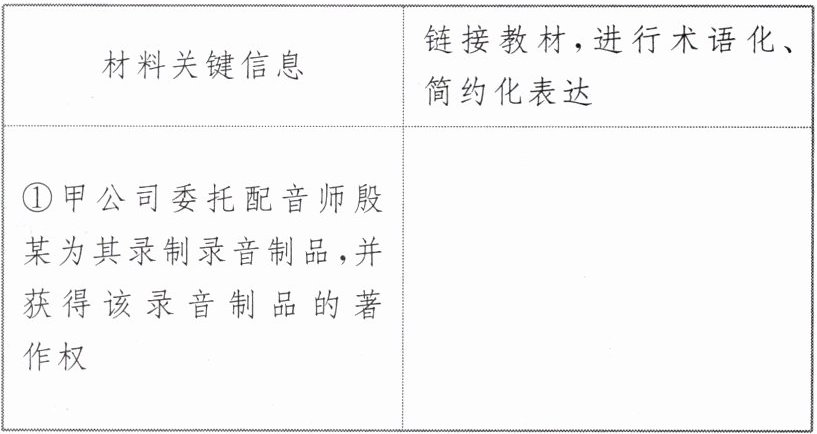 材料关键信息
链接教材,进行术语化、
简约化表达
①甲公司委托配音师殷
某为其录制录音制品,并
获得该录音制品的著
作权